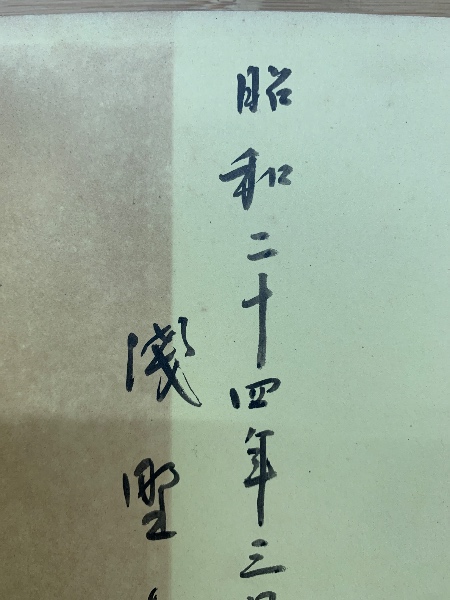 昭和二十四年三月
淺野